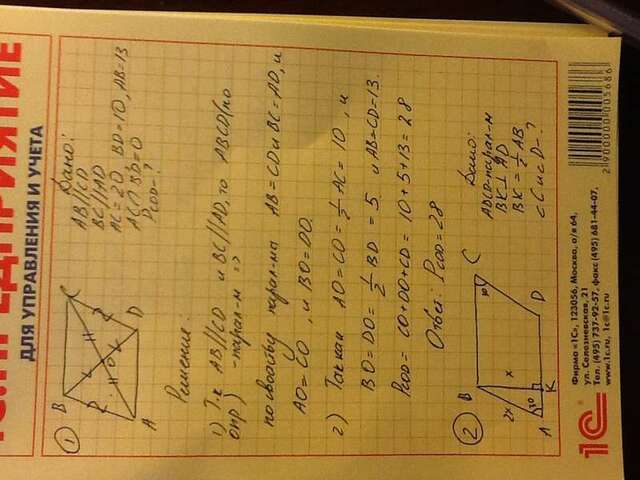 ПРЕДПРИЯТИЕ
ДЛЯ УПРАВЛЕНИЯ И УЧЕТА
1
B
C
A
D
O
Дано:
AB//CD
BC//AD
AC=20 BD=10, AB=13
AC∩BD=O
PCOD-?
Решение:
1) Т.к AB//CD и BC//AD, то ABCD (по
опр) - парал-м =>
по свойству парал-ма AB=CD и BC=AD, и
AO=CO, и BO=DO.
2) Так как AO=CO=1/2 AC=10, и
BO=DO=1/2 BD=5 и AB=CD=13.
PCOD=CO+DO+CD=10+5+13=28
Ответ: PCOD=28
2
B
C
2x
x
30
30
A
K
D
Дано:
ABCD-парал-м
BK⊥AD
BK=1/2 AB
∠C и ∠D-?
1С
Фирма «1С», 123056, Москва, а/я 64,
ул. Селезневская, 21
Тел. (495) 737-92-57, факс (495) 681-44-07,
www.1c.ru, 1c@1c.ru
2900000005686